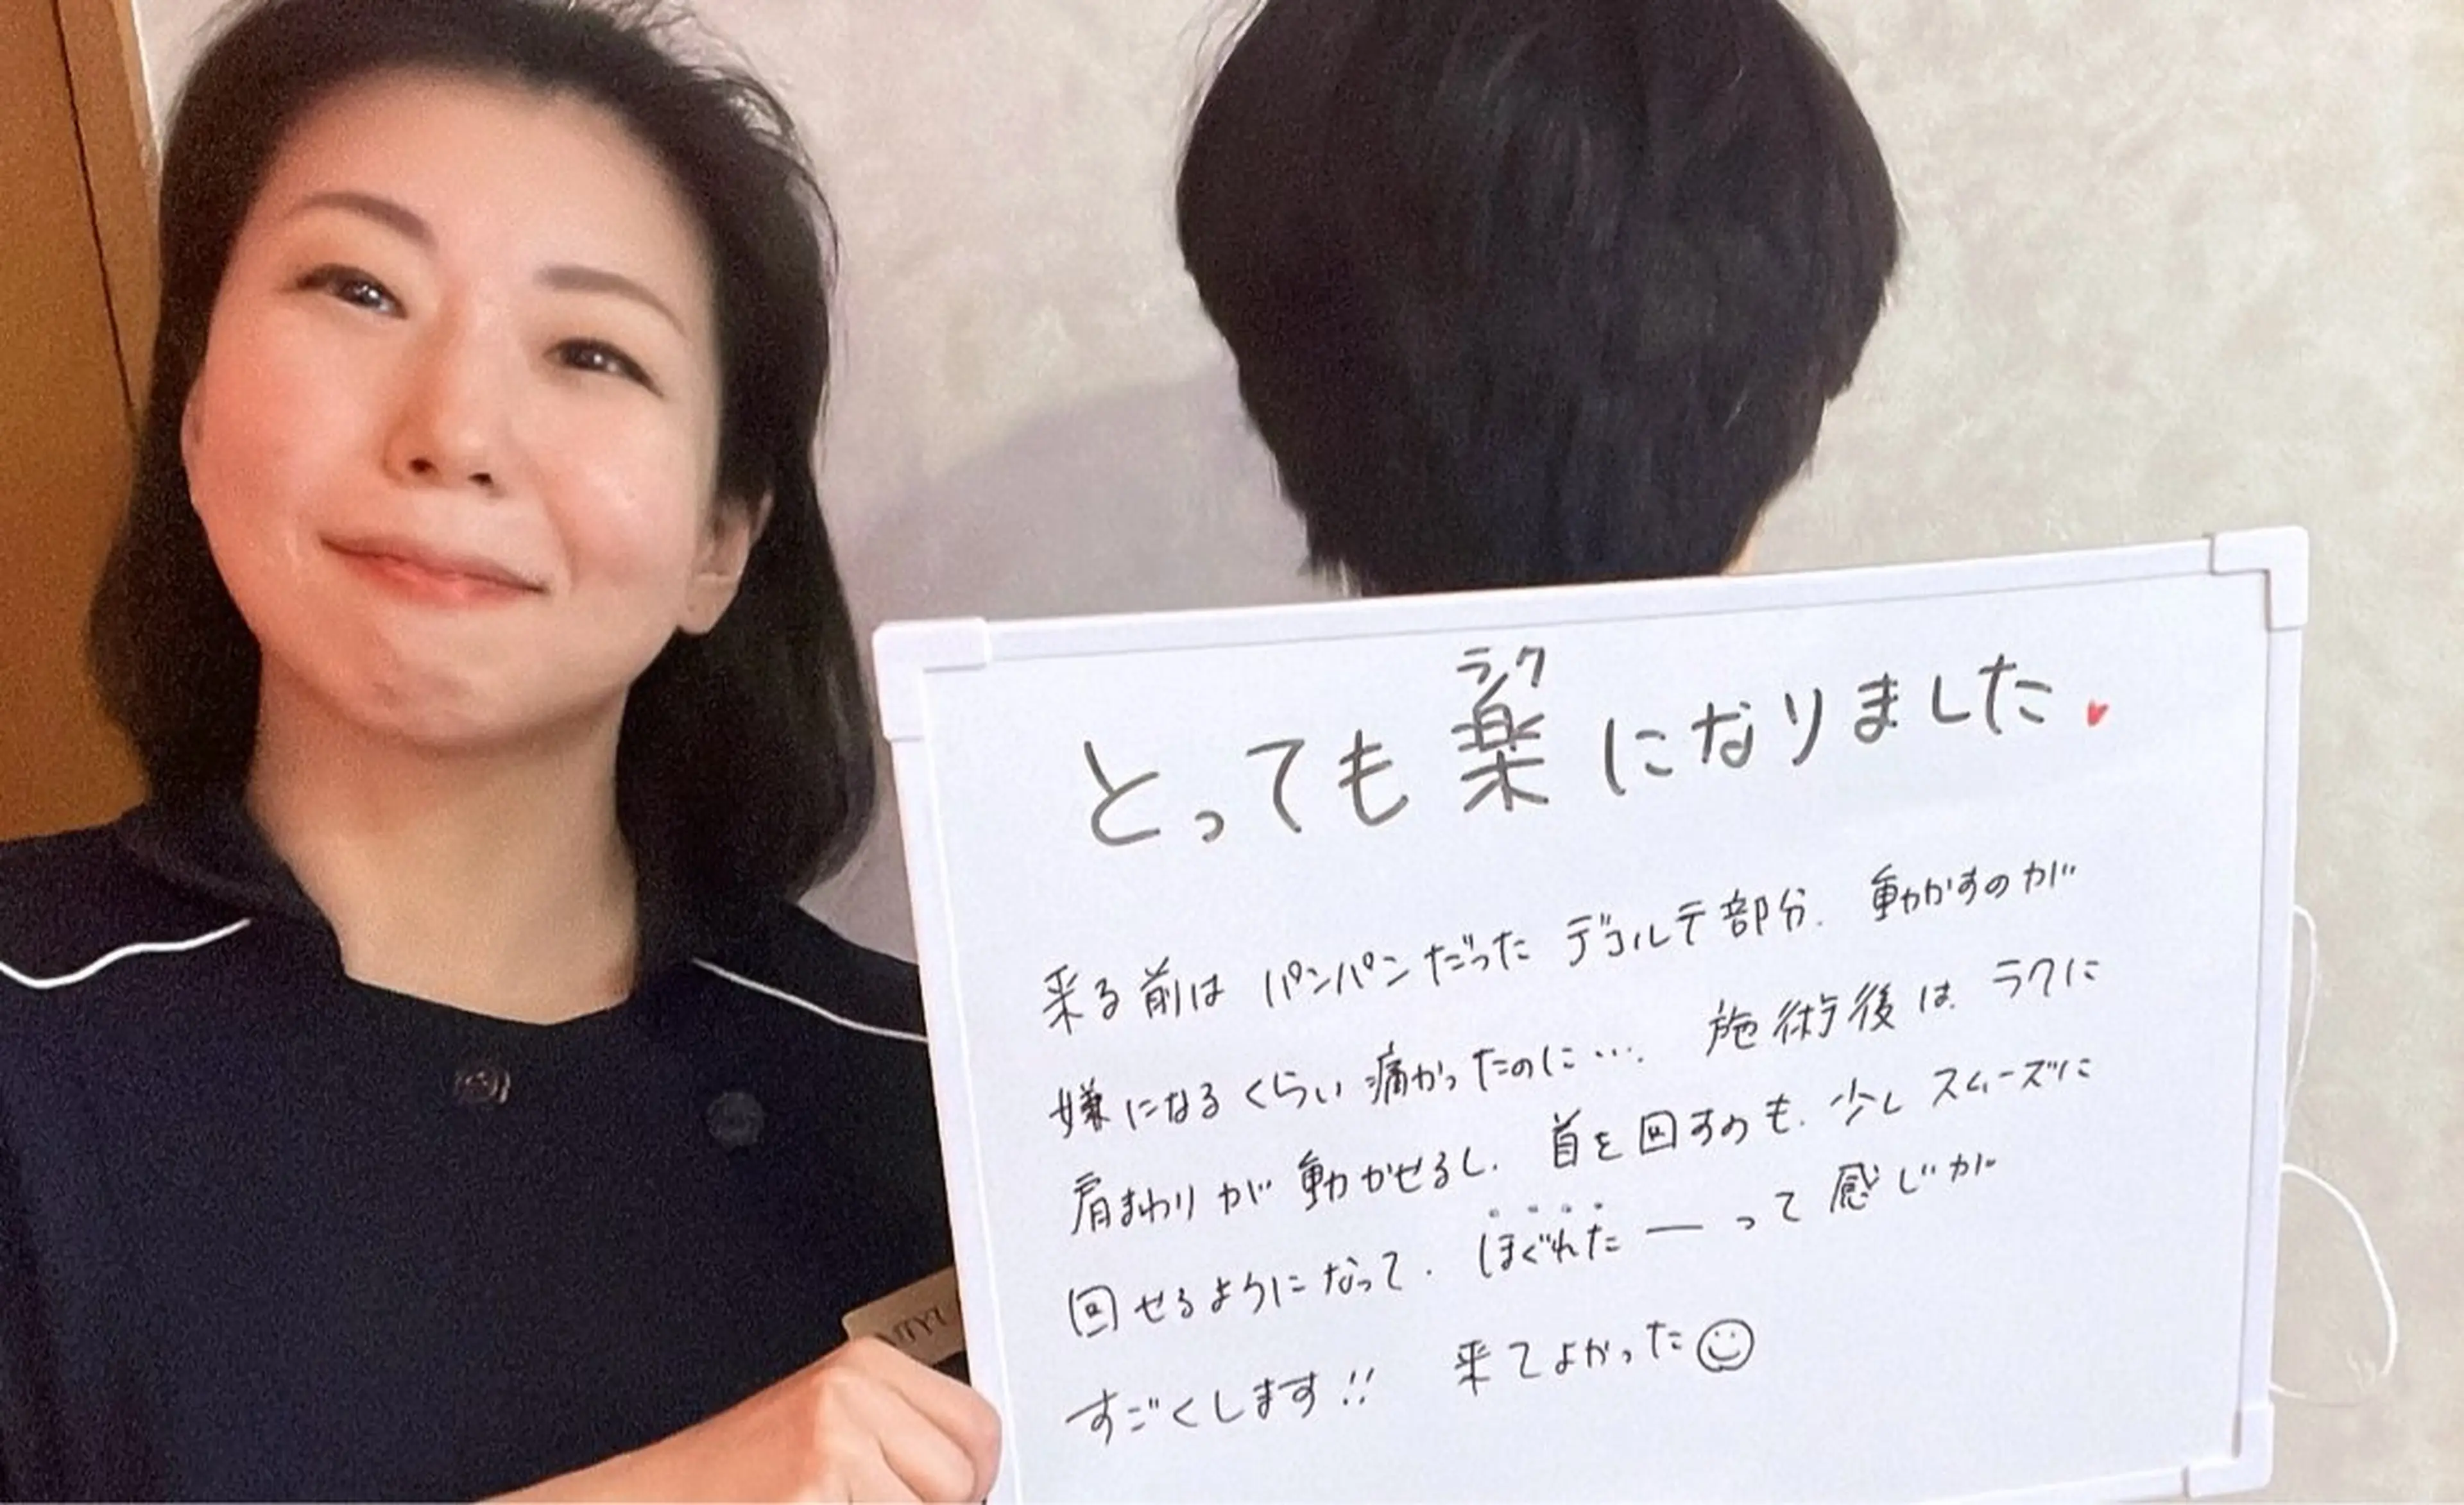 ラク
とっても楽になりました♥
来る前は パンパンだった デコルテ部分. 動かすのが
嫌になるくらい 痛かったのに…. 施術後は ラクに
肩まわりが 動かせるし. 首を回すのも. 少し スムーズに
回せるようになって. ほぐれたーって 感じが
すごくします!! 来てよかった☺